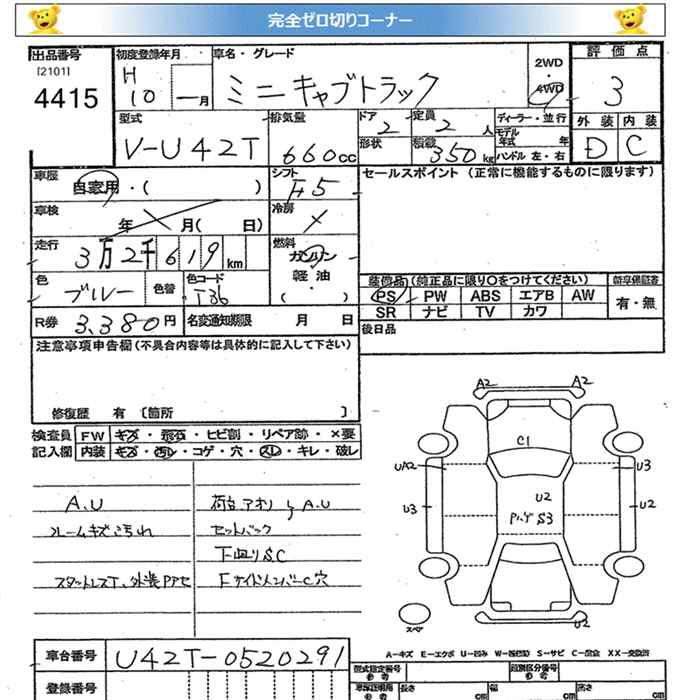 完全ゼロ切りコーナー
出品番号 初度登録年月 車名・グレード 2WD・4WD 評価点
[2101]
4415 H10 一月 ミニキャブトラック 3
型式 排気量 ドア 定員 ディーラー・並行 外装 内装
V-U42T 660cc 2 2人 モデル年式 年 D C
形状 積載 350kg ハンドル 左・右
車歴 自家用・( ) シフト F5 セールスポイント (正常に機能するものに限ります)
車検 年 月( 日) 冷房 ×
走行 3万2千619km 燃料 ガソリン
軽・油
( )
色 ブルー 色替 色コード T36
装備品(純正品に限り〇をつけてください) 新車保証書
PS PW ABS エアB AW 有・無
SR ナビ TV カワ
R券 3,380円 名変通知期限 月 日 後日品
注意事項申告欄(不具合内容等は具体的に記入して下さい)
修復歴 有 [箇所 ]
検査員 FW キズ・飛石・ヒビ割・リペア跡・×要
記入欄 内装 キズ・汚れ・コゲ・穴・スレ・キレ・破レ
A.U 荷台アオリ A.U
ルームキズ汚れ セットバック
下廻りS.C
スタットレスT、外装Pアセ FサイドメンバーC穴
A2 A2
C1
UA2 U3
U3 U2 U2
S3
U2
スペア
A-キズ E-エクボ U-凹み W-補修跡 S-サビ C-腐食 XX-交換済
車台番号 U42T-0520291
型式指定番号 参考 類別区分番号 参考
登録番号 長さ cm 幅 cm 高さ cm